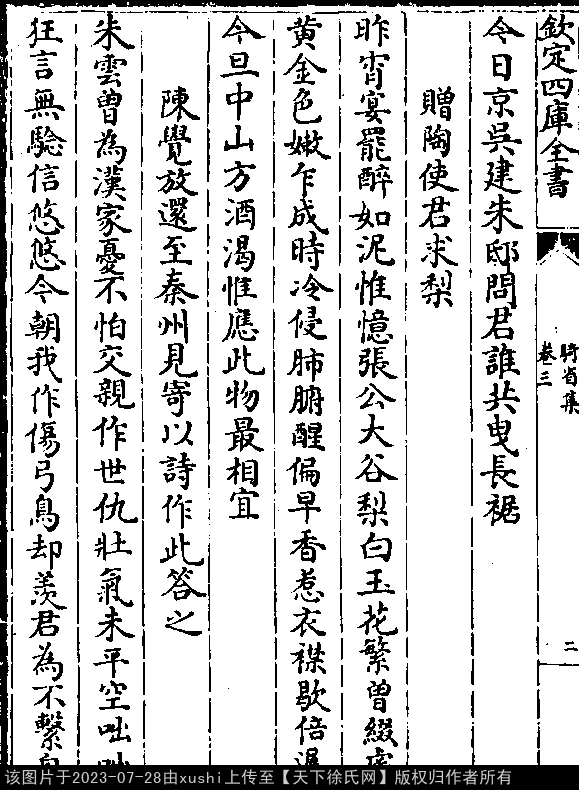 欽定四庫全書
騎省集
卷三
二
今日京吳建朱邸問君誰共曳長裾
贈陶使君求梨
昨宵宴罷醉如泥惟憶張公大谷梨白玉花繁曾綴處
黄金色嫩乍成時冷侵肺腑醒偏早香惹衣襟歇倍遲
今旦中山方酒渴惟應此物最相宜
陳覺放還至秦州見寄以詩作此答之
朱雲曾為漢家憂不怕交親作世仇壯氣未平空咄咄
狂言無驗信悠悠今朝我作傷弓鳥却羨君為不繫
该图片于2023-07-28由xushi上传至【天下徐氏网】版权归作者所有